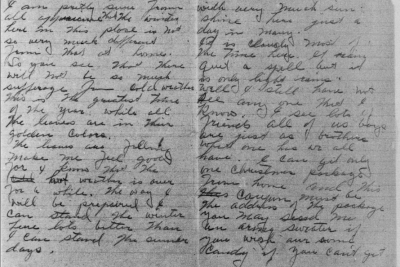 I am pretty sure from
all appearance that the winter
here in this place is not
so very much different
from that at home.
So you see that there
will not be so much
suffering from cold weather
this is the greatest time
of the year while all
the leaves are in their
golden colors.
The leaves are falling
make me feel good
for I know that the
hot weather is over
for a while. The way I
will be prepared I
can stand the winter
here lots better than
I can stand the summer
days.
with very much sun-
shine here just a
day in many.
It is cloudy most of
the time here. It rains
quit a still but it
is only light rains.
Well I still have not
see any one that I
know. I see lots of
friends all of the boys
are just as a brother
what one has we all
have. I can get only
one Christmas package
from home and this
Coupon must be
the address of the package
you may send me
an army sweater if
you wish our some
Candy if you can't get